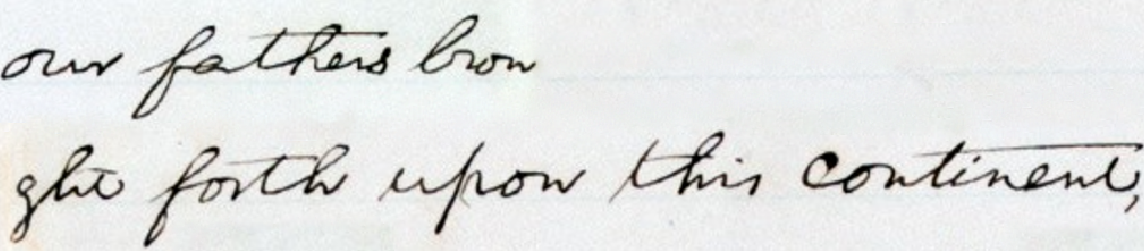 our fathers brou
ght forth upon this continent,